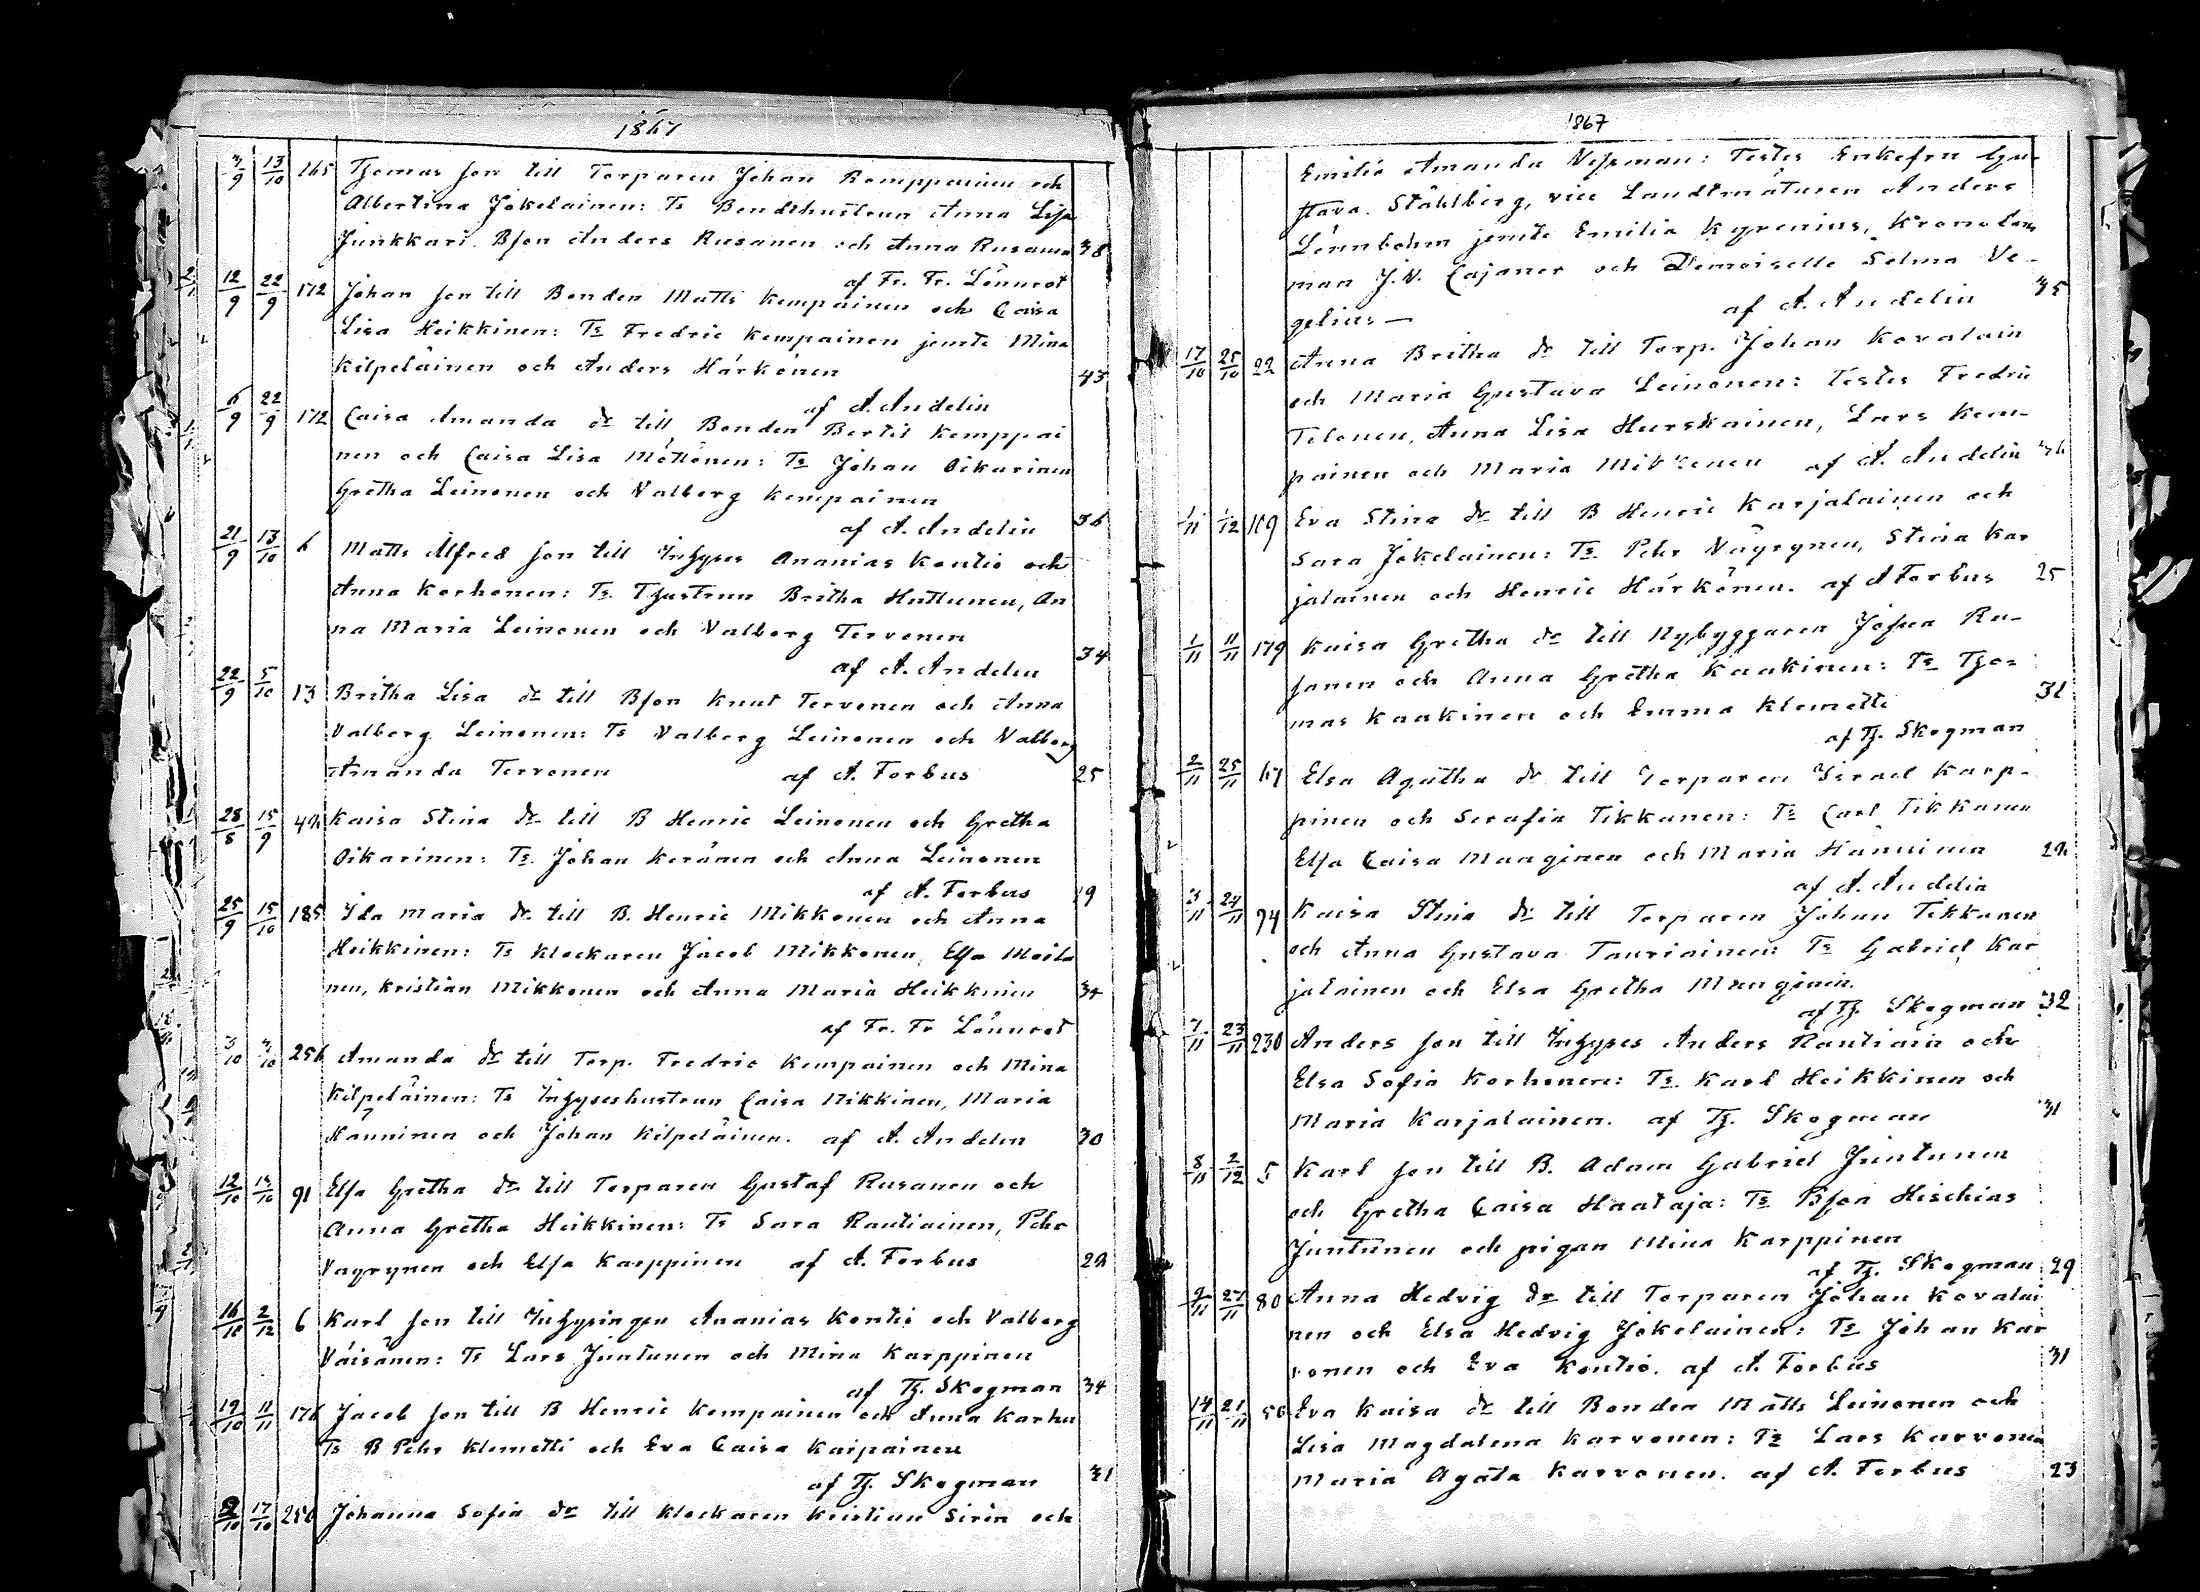 1867
3/9 13/10 165 Thomas son till Torparen Johan Romppainen och
Albertina Jokelainen: Ts Bondehustrun Anna Lisa
Junkkari Bson Anders Rusanen och Anna Rusanen 38
af Fr. Fr. Lönnrot
12/9 22/9 172 Johan son till Bonden Matts Kempainen och Caisa
Lisa Heikkinen: Ts Fredric Kempainen jemte Mina
Kilpeläinen och Anders Härkönen 43
af A. Andelin
6/9 22/9 172 Caisa Amanda dr till Bonden Bertil Kemppai
nen och Caisa Lisa Möttönen: Ts Johan Oikarinen
Gretha Leinonen och Valborg Kempainen 36
af A. Andelin
21/9 13/10 6 Matts Alfred son till Inhyses Ananias Kontio och
Anna Korhonen: Ts Thustrun Britha Huttunen, An
na Maria Leinonen och Valborg Tervonen 34
af A. Andelin
22/9 5/10 13 Britha Lisa dr till Bson Knut Tervonen och Anna
Valborg Leinonen: Ts Valborg Leinonen och Valborg
Amanda Tervonen af A. Forbus 25
28/8 15/9 42 Kaisa Stina dr till B Henric Leinonen och Gretha
Oikarinen: Ts. Johan Keränen och Anna Leinonen
af A. Forbus 19
25/9 15/10 185 Ida Maria dr. till B. Henric Mikkonen och Anna
Heikkinen: Ts Klockaren Jacob Mikkonen, Elsa Meila
nen, Kristian Mikkonen och Anna Maria Heikkinen 34
af Fr. Fr Lönnrot
3/10 256 Amanda dr till Torp. Fredric Kempainen och Mina
Kilpeläinen: Ts Inhyseshustrun Caisa Mikkinen, Maria
Manninen och Johan Kilpeläinen. af A. Andelin 30
12/10 91 Elsa Gretha dr till Torparen Gustaf Rusanen och
Anna Gretha Heikkinen: Ts Sara Rautiainen, Pehr
Vayrynen och Elsa Karppinen af A. Forbus 22
16/10 2/12 6 Karl son till Inhysingen Ananias Kontio och Valborg
Väisänen: Ts Lars Juntunen och Mina Karppinen
af Th. Skogman 34
19/10 11/11 176 Jacob son till B Henric Kempainen och Anna Karhu
Ts B Pehr Klemetti och Eva Caisa Kaipainen
af Th. Skogman 31
17/10 Johanna Sofia dr till Klockaren Kristian Sirén och
1867
Emilie Amanda Nessman: Testes Enkefru Gu-
stava Ståhlberg, vice Landtmätaren Anders
Lönnbohm jemte Emilia Kyrenius, Kronolens
man J. V. Cajaner och Demoiselle Selma Ve-
gelius — af A. Andelin 35
17/10 25/10 22 Anna Britha dr till Torp. Johan Kovalain
och Maria Gustava Leinonen: Testes Fredric
Tolonen, Anna Lisa Hurskainen, Lars Kem-
painen och Maria Mikkonen af A. Andelin
1/11 1/12 109 Eva Stina dr till B Henric Karjalainen och
Sara Jokelainen: Ts. Pehr Väyrynen, Stina Kar
jalainen och Henric Härkönen. af A Forbus 25
1/11 11/11 179 Kaisa Gretha dr till Nybyggaren Josua Ru-
sanen och Anna Gretha Kaakinen: Ts Tho-
mas Kaakinen och Emma Klemetti 31
af Th. Skogman
2/11 25/11 67 Elsa Agatha dr till Torparen Israel Karp-
pinen och Serafia Tikkanen: Ts Carl Tikkanen
Elsa Caisa Manginen och Maria Hänninen 22
af A. Andelin
3/11 24/11 94 Kaisa Stina dr till Torparen Johan Tikkanen
och Anna Gustava Tauriainen: Ts Gabriel Kar
jalainen och Elsa Gretha Manginen.
af Th. Skogman 32
7/11 23/11 230 Anders son till Inhyses Anders Rautiain och
Elsa Sofia Korhonen: Ts. Karl Heikkinen och
Maria Karjalainen. af Th. Skogman 31
8/11 2/12 5 Karl son till B. Adam Gabriel Juntunen
och Gretha Caisa Haataja: Ts Bson Hischias
Juntunen och pigan Mina Karppinen
af Th. Skogman 29
9/11 27/11 80 Anna Hedvig dr till Torparen Johan Kovalai
nen och Elsa Hedvig Jokelainen: Ts Johan Kar
vonen och Eva Kontio. af A. Forbus 31
14/11 21/11 56 Eva Kaisa dr till Bonden Matts Leinonen och
Lisa Magdalena Karvonen: Ts Lars Karvonen
Maria Agata Karvonen. af A. Forbus 23